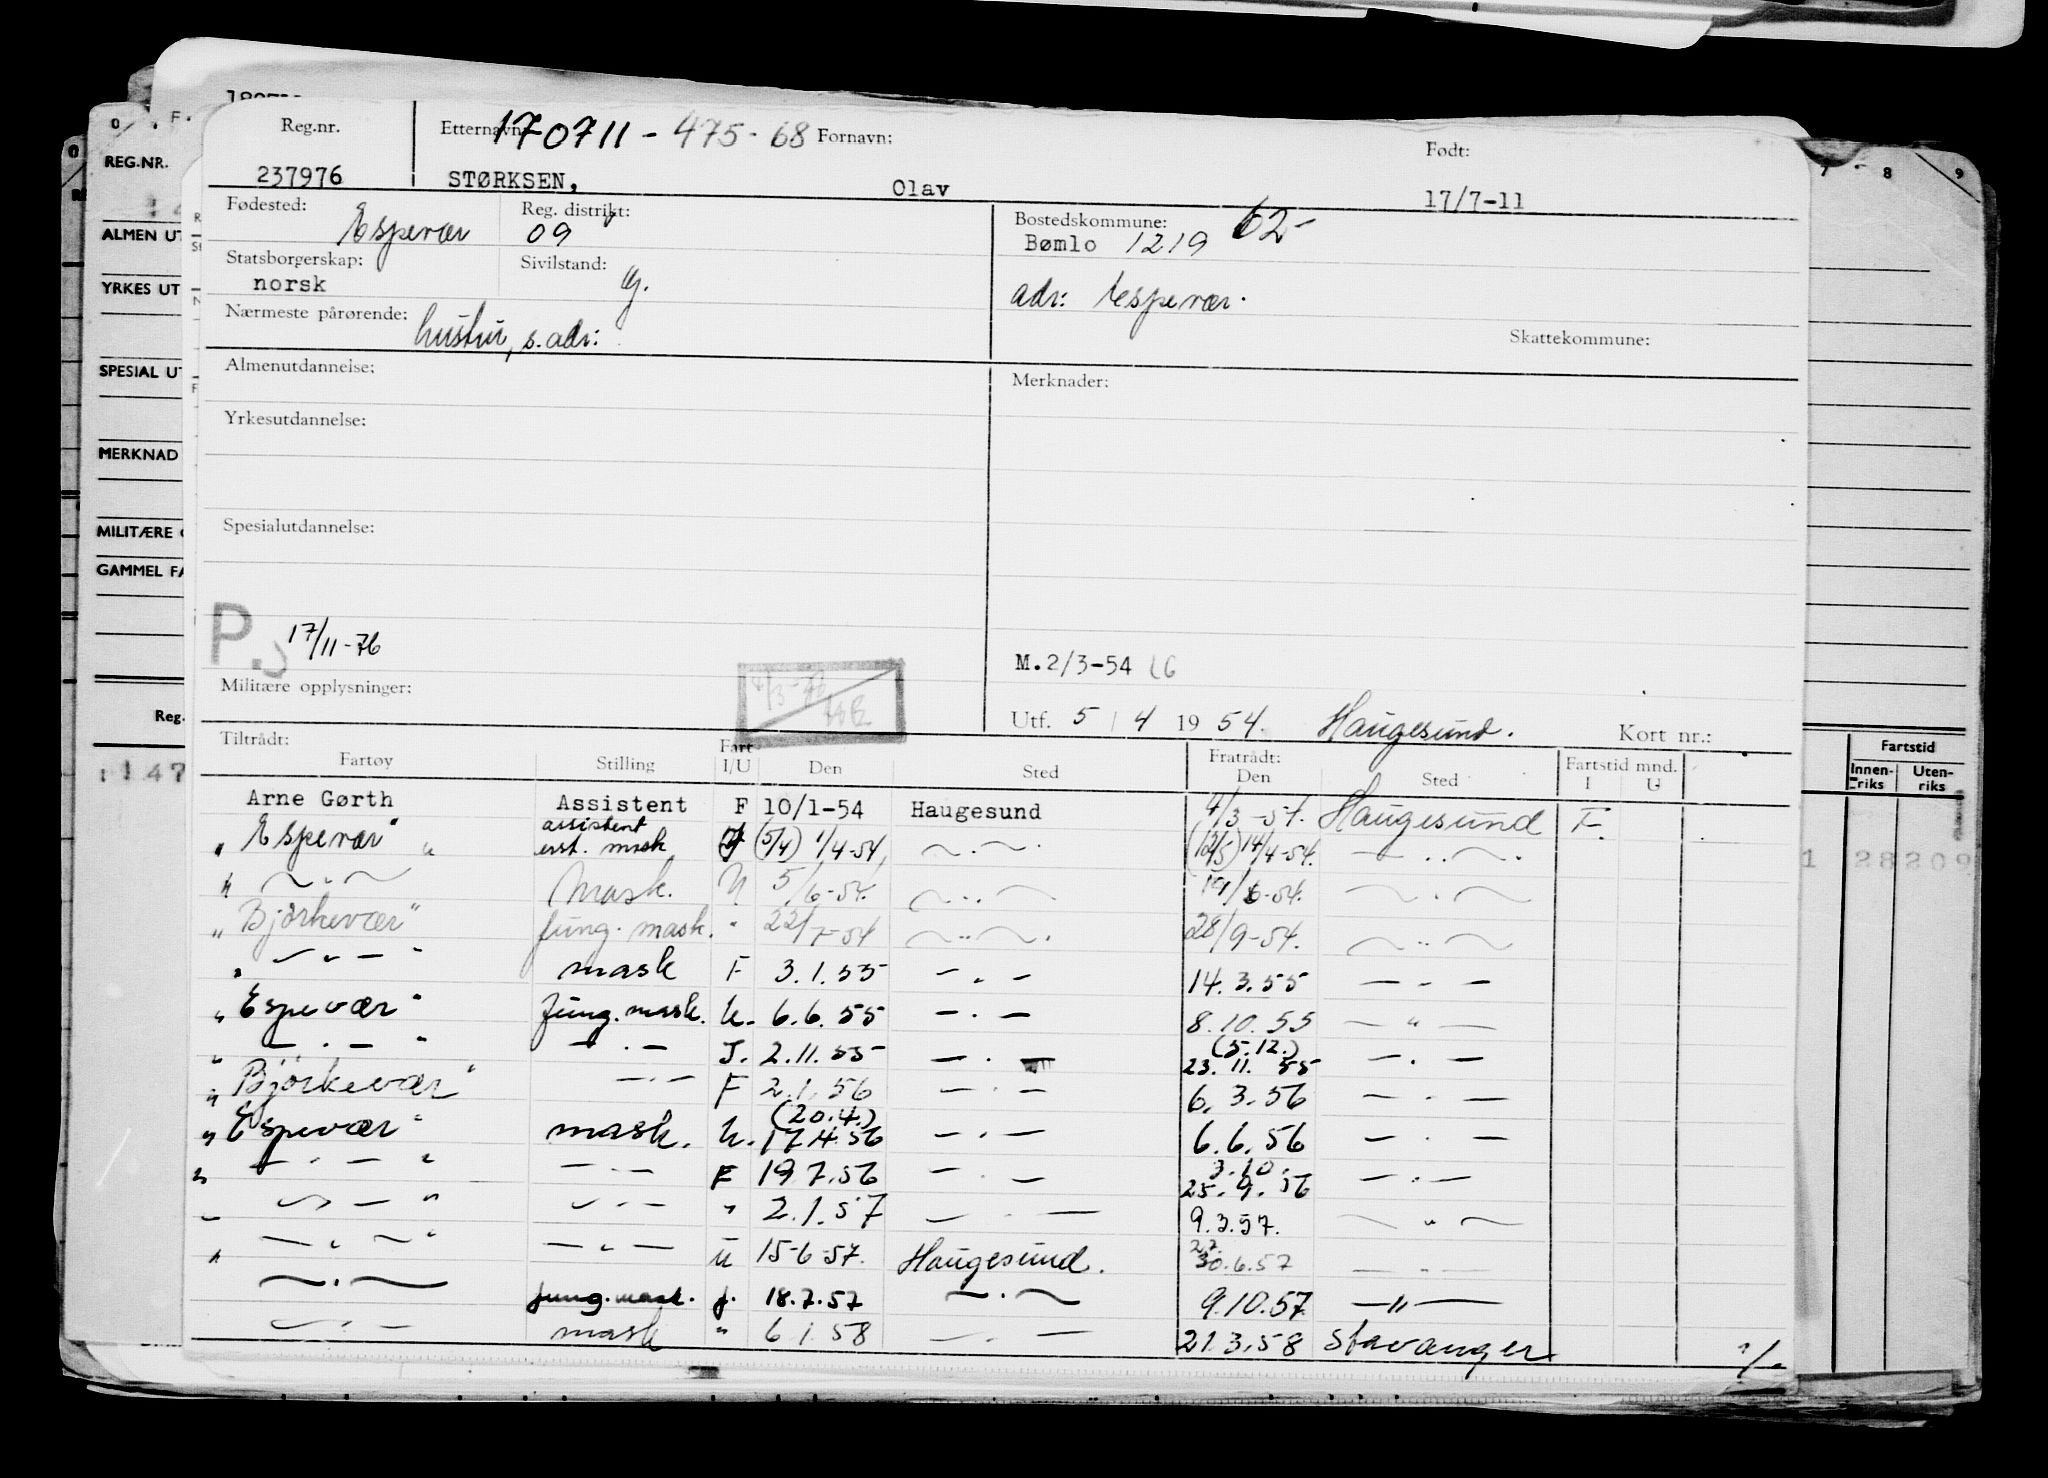 Reg.nr. Etternavn: 170711 - 475 - 68 Fornavn: Født:
237976 STØRKSEN, Olav 17/7-11
Fødested: Espevær Reg. distrikt: 09 Bostedskommune: Bømlo 1219 62-
Statsborgerskap: norsk Sivilstand: g. adr: Espevær.
Nærmeste pårørende: hustru, s. adr: Skattekommune:
Almenutdannelse: Merknader:
Yrkesutdannelse:
Spesialutdannelse:
P. 17/11-76
M.2/3-54
Militære opplysninger:
Utf. 5 / 4 19 54. Haugesund. Kort nr.:
Tiltrådt: Fratrådt: Fartstid mnd.
Fartøy Stilling Fart I/U Den Sted Den Sted I U
Arne Gørth Assistent F 10/1-54 Haugesund 4/3-54. Haugesund F.
" Espevær " assistent
erst. mask (5/4) 1/4-54, — . — . (12/5) 14/4-54. — .. — .
" — . — Mask. U 5/6-54. — .. — 19/6-54. — . —
" Björkevær" Jung. mask. " 22/7-54 — .. — . 28/9-54. — .. —
" — " — " mask F 3.1.55 — . — 14.3.55 — - —
" Espevær" Jung. mask. U. 6.6.55 — . — 8.10.55 — " —
" — . — " — . — J. 2.11.55 — . — (5.12.) 23.11.55 — . —
" Björkevær" — . — F 2.1.56 — . — 6.3.56 — . —
" Espevær" mask. U. (20.4.) 17.4.56 — . — 6.6.56 — . —
" — . — " — . — F 19.7.56 — . — 3.10. 25.9.56 — . —
" — — " — . — " 2.1.57 — . — 9.3.57. — " —
" — " — " — " — U 15-6-57. Haugesund. 2.7. 30.6.57 — . —
— . — Jung. mask. J. 18.7.57 — . — 9.10.57. — " —
— . — mask " 6.1.58 — . — 21.3.58 Stavanger
REG.NR.
ALMEN UT
YRKES UT
SPESIAL UT
MERKNAD
MILITÆRE
GAMMEL FA
Reg.
147
7 8 9
Fartstid
Innenriks Utenriks
1 28209